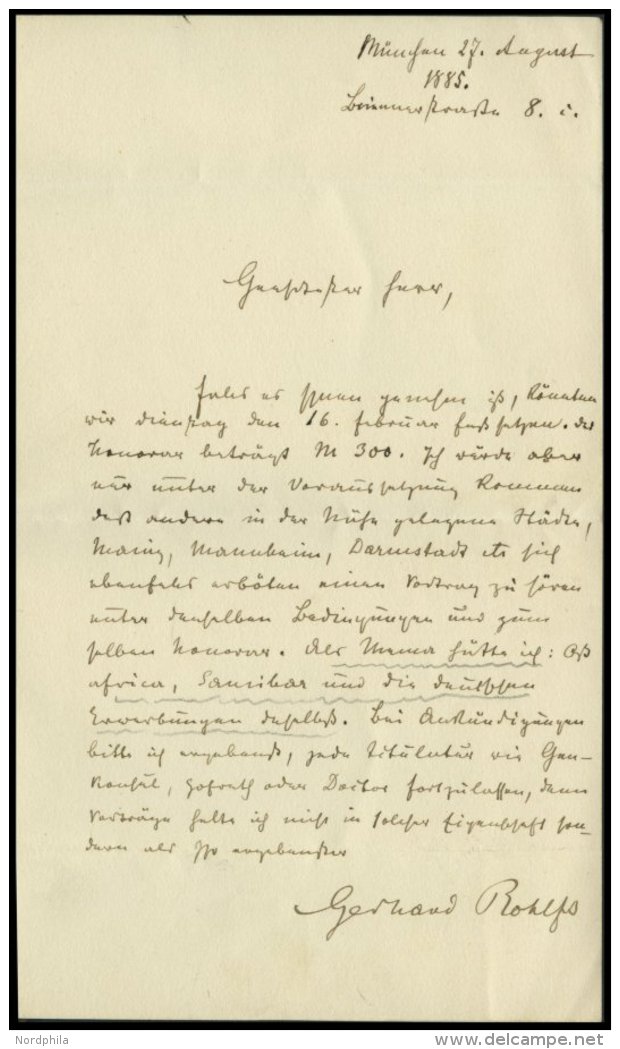 München 27. August
1885.
Briennerstraße 8. i.
Geehrtester Herr,
Falls es Ihnen genehm ist, könnten
wir Dienstag den 16. Februar festsetzen. Das
Honorar beträgt M 300. Ich würde aber
nur unter der Voraussetzung kommen
daß andere in der Nähe gelegene Städte,
Mainz, Mannheim, Darmstadt etc sich
ebenfalls erböten einen Vortrag zu hören
unter denselben Bedingungen und zum
selben Honorar. Als Thema hätte ich: Ost
africa, Sansibar und die deutschen
Erwerbungen daselbst. Bei Ankündigungen
bitte ich ergebenst, jede Titulatur wie Gen-
konsul, Hofrath oder Doctor fortzulassen, denn
Vorträge halte ich nicht in solcher Eigenschaft son-
dern als Ihr ergebenster
Gerhard Rohlfs
Nordphila
www.delcampe.net